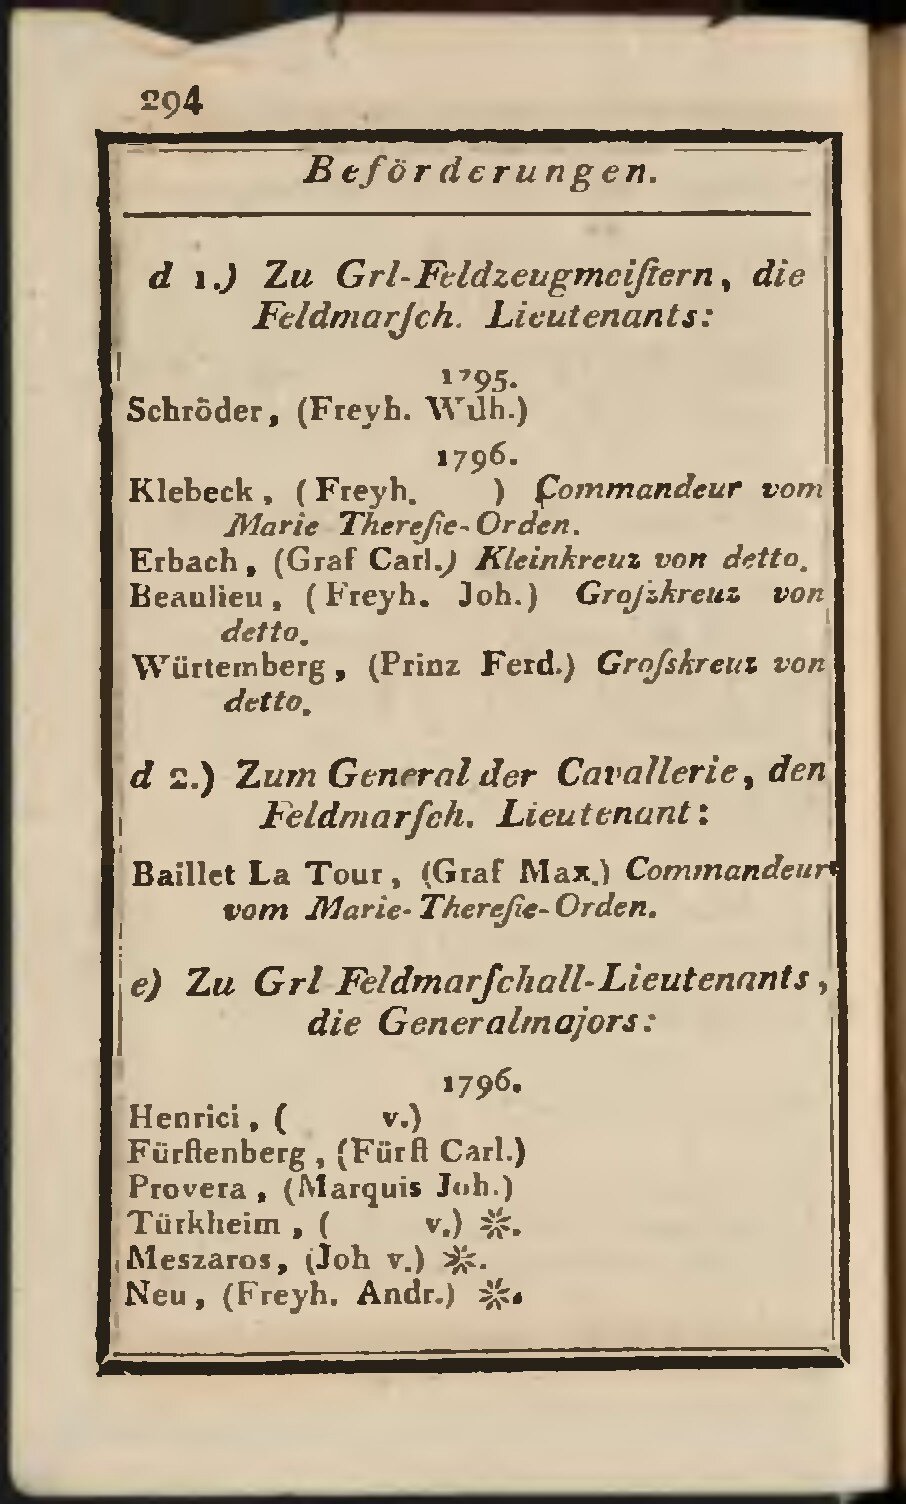 294
Beförderungen.
d 1.) Zu Grl-Feldzeugmeiſtern, die
Feldmarſch. Lieutenants:
1795.
Schröder, (Freyh. Wilh.)
1796.
Klebeck, (Freyh. ) Commandeur vom
Marie Thereſie-Orden.
Erbach, (Graf Carl.) Kleinkreuz von detto.
Beaulieu, (Freyh. Joh.) Groſzkreuz von
detto.
Würtemberg, (Prinz Ferd.) Groſskreuz von
detto.
d 2.) Zum General der Cavallerie, den
Feldmarſch. Lieutenant:
Baillet La Tour, (Graf Max.) Commandeur
vom Marie-Thereſie-Orden.
e) Zu Grl Feldmarſchall-Lieutenants,
die Generalmajors:
1796.
Henrici, ( v.)
Fürſtenberg, (Fürſt Carl.)
Provera, (Marquis Joh.)
Türkheim, ( v.) ※.
Meszaros, (Joh v.) ※.
Neu, (Freyh. Andr.) ※.